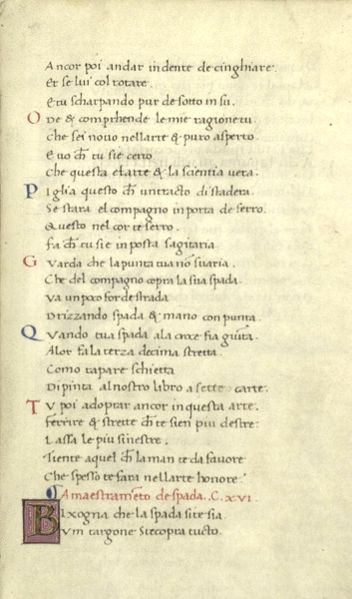 Ancor poi andar in dente de cinghiare.
Et se lui col rotare.
E tu scharpando pur de sotto in su.
Ode & comprende le mie ragion tu.
Che sei novo nellarte & puro asperto.
E vo ch tu sie certo
Che questa e larte & la scientia vera.
Piglia questo ch un tracto di stadera.
Se stara el compagno in porta de ferro.
Questo nel cor te serro.
Fa ch tu sie in posta sagitaria
Guarda che la punta tua nō svaria.
Che del compagno copra la sua spada.
Va un poco for de strada
Drizzando spada & mano con punta.
Quando tua spada ala croce fia giūta.
Alor fa la terza decima stretta.
Como tapare schietta
Dipinta al nostro libro a sette carte.
Tu poi adoptar ancor in questa arte.
Ferrire & strette ch te sien piu destre.
Lassa le piu sinestre.
Tiente a quel ch la man te da favore
Che spesso te fara nellarte honore.
Amaestramēto de spada. C. XVI.
Bixogna che la spada si te sia.
Vm targone ste copra tucto.